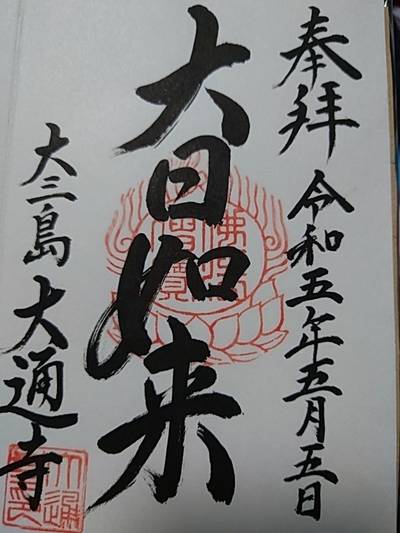 奉拝
令和五年五月五日
大日如来
大三島
大通寺